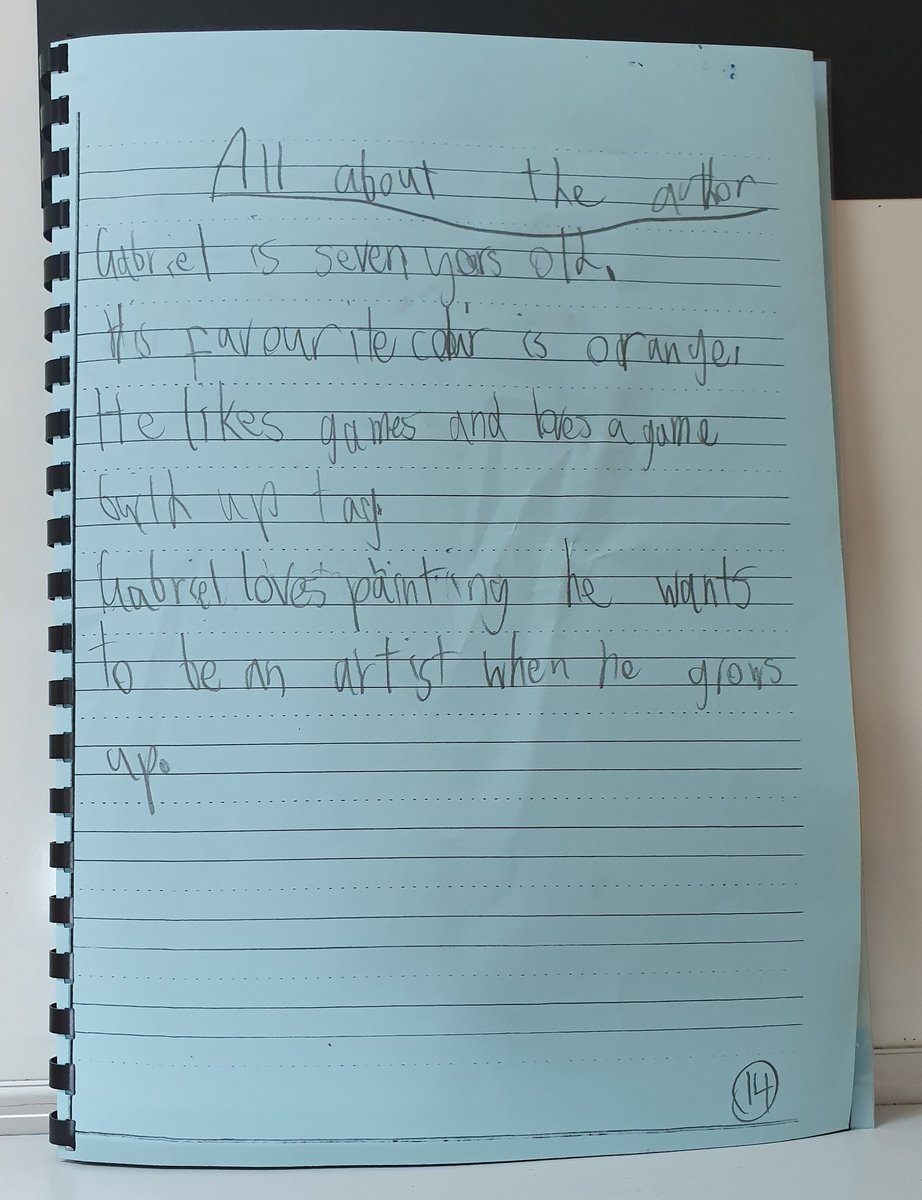 All about the author
Gabriel is seven years old.
His favourite colour is orange.
He likes games and loves a game
build up tag.
Gabriel loves painting he wants
to be an artist when he grows
up.
14